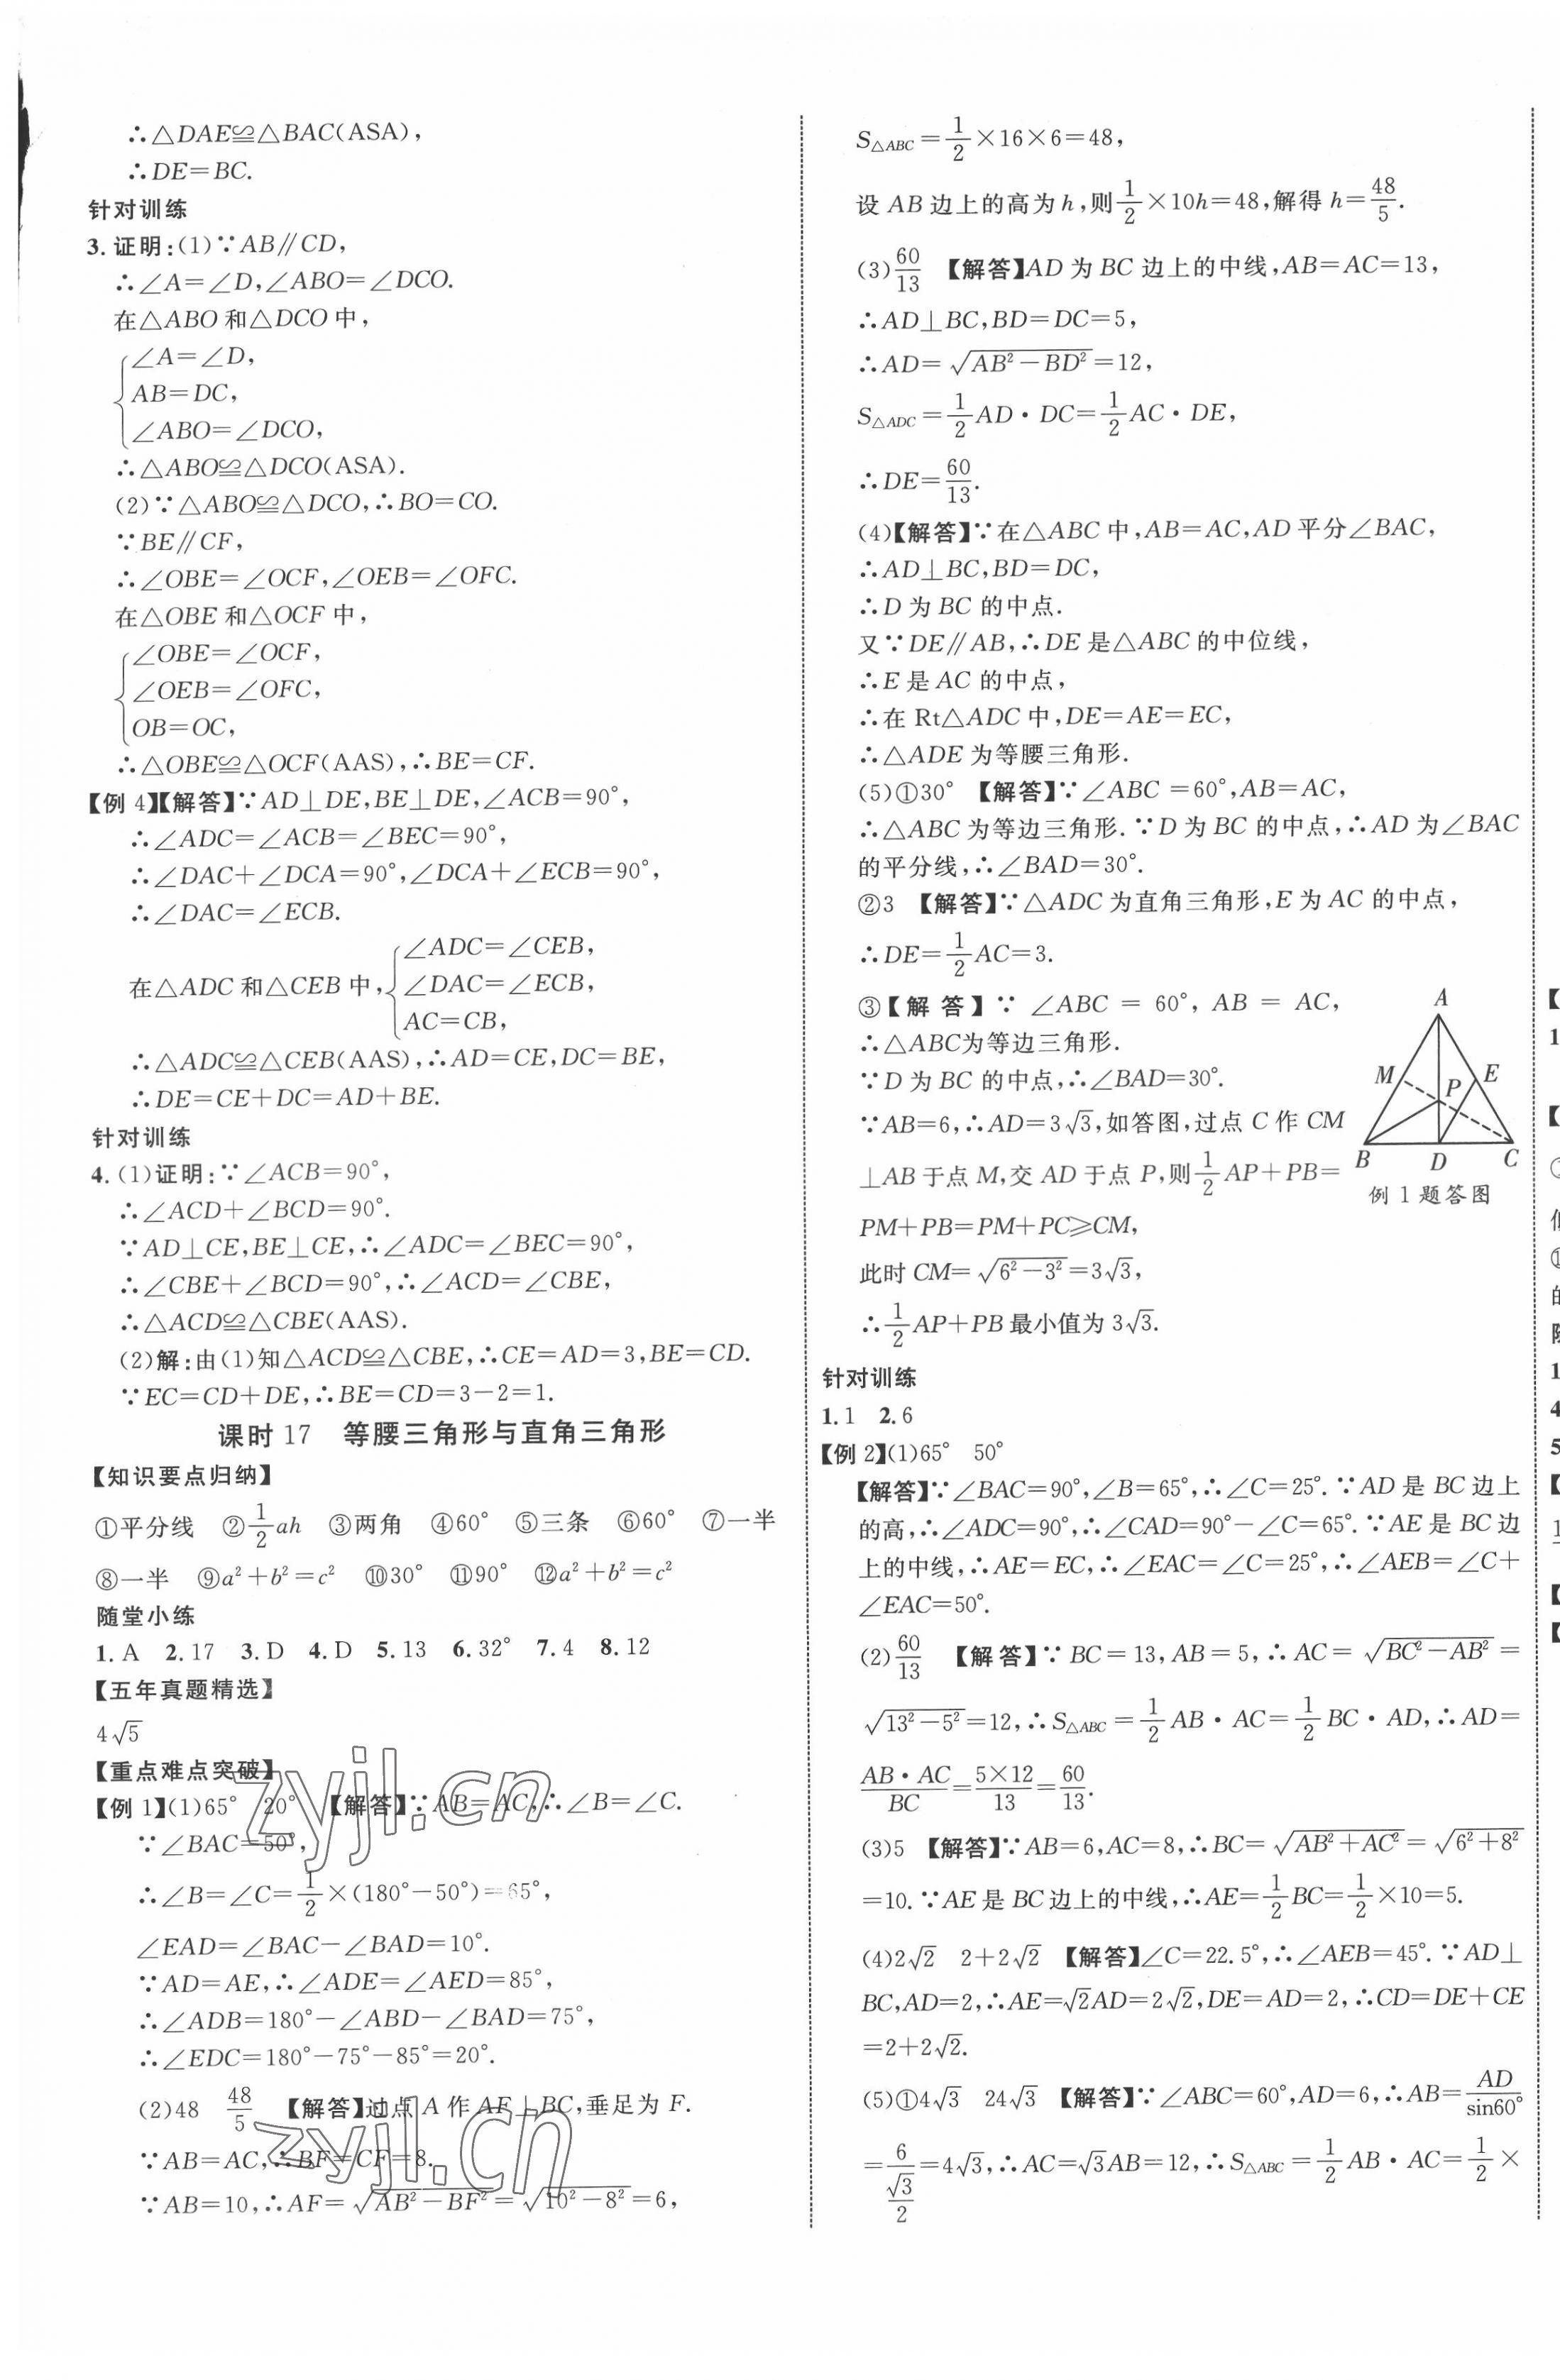 ∴△DAE≌△BAC(ASA),
∴DE=BC.
针对训练
3.证明:(1)∵AB∥CD,
∴∠A=∠D,∠ABO=∠DCO.
在△ABO和△DCO中,
∠A=∠D,
AB=DC,
∠ABO=∠DCO,
∴△ABO≌△DCO(ASA).
(2)∵△ABO≌△DCO,∴BO=CO.
∵BE∥CF,
∴∠OBE=∠OCF,∠OEB=∠OFC.
在△OBE和△OCF中,
∠OBE=∠OCF,
∠OEB=∠OFC,
OB=OC,
∴△OBE≌△OCF(AAS),∴BE=CF.
【例4】【解答】∵AD⊥DE,BE⊥DE,∠ACB=90°,
∴∠ADC=∠ACB=∠BEC=90°,
∴∠DAC+∠DCA=90°,∠DCA+∠ECB=90°,
∴∠DAC=∠ECB.
在△ADC和△CEB中,
∠ADC=∠CEB,
∠DAC=∠ECB,
AC=CB,
∴△ADC≌△CEB(AAS),∴AD=CE,DC=BE,
∴DE=CE+DC=AD+BE.
针对训练
4.(1)证明:∵∠ACB=90°,
∴∠ACD+∠BCD=90°.
∵AD⊥CE,BE⊥CE,∴∠ADC=∠BEC=90°,
∴∠CBE+∠BCD=90°,∴∠ACD=∠CBE,
∴△ACD≌△CBE(AAS).
(2)解:由(1)知△ACD≌△CBE,∴CE=AD=3,BE=CD.
∵EC=CD+DE,∴BE=CD=3-2=1.
课时17 等腰三角形与直角三角形
【知识要点归纳】
①平分线 ②1/2ah ③两角 ④60° ⑤三条 ⑥60° ⑦一半
⑧一半 ⑨a²+b²=c² ⑩30° ⑪90° ⑫a²+b²=c²
随堂小练
1.A 2.17 3.D 4.D 5.13 6.32° 7.4 8.12
【五年真题精选】
4√5
【重点难点突破】
【例1】(1)65° 20° 【解答】∵AB=AC,∴∠B=∠C.
∵∠BAC=50°,
∴∠B=∠C=1/2×(180°-50°)=65°,
∠EAD=∠BAC-∠BAD=10°.
∵AD=AE,∴∠ADE=∠AED=85°,
∴∠ADB=180°-∠ABD-∠BAD=75°,
∴∠EDC=180°-75°-85°=20°.
(2)48 48/5 【解答】过点A作AF⊥BC,垂足为F.
∵AB=AC,∴BF=CF=8.
∵AB=10,∴AF=√(AB²-BF²)=√(10²-8²)=6,
zyjl.cn
zyjl.cn
S△ABC=1/2×16×6=48,
设AB边上的高为h,则1/2×10h=48,解得h=48/5.
(3)60/13 【解答】AD为BC边上的中线,AB=AC=13,
∴AD⊥BC,BD=DC=5,
∴AD=√(AB²-BD²)=12,
S△ADC=1/2AD·DC=1/2AC·DE,
∴DE=60/13.
(4)【解答】∵在△ABC中,AB=AC,AD平分∠BAC,
∴AD⊥BC,BD=DC,
∴D为BC的中点.
又∵DE∥AB,∴DE是△ABC的中位线,
∴E是AC的中点,
∴在Rt△ADC中,DE=AE=EC,
∴△ADE为等腰三角形.
(5)①30° 【解答】∵∠ABC=60°,AB=AC,
∴△ABC为等边三角形.∵D为BC的中点,∴AD为∠BAC
的平分线,∴∠BAD=30°.
②3 【解答】∵△ADC为直角三角形,E为AC的中点,
∴DE=1/2AC=3.
③【解答】∵∠ABC=60°,AB=AC,
∴△ABC为等边三角形.
∵D为BC的中点,∴∠BAD=30°.
∵AB=6,∴AD=3√3,如答图,过点C作CM
⊥AB于点M,交AD于点P,则1/2AP+PB=
PM+PB=PM+PC≥CM,
此时CM=√(6²-3²)=3√3,
∴1/2AP+PB最小值为3√3.
A
M
E
P
B
D
C
例1题答图
针对训练
1.1 2.6
【例2】(1)65° 50°
【解答】∵∠BAC=90°,∠B=65°,∴∠C=25°.∵AD是BC边上
的高,∴∠ADC=90°,∴∠CAD=90°-∠C=65°.∵AE是BC边
上的中线,∴AE=EC,∴∠EAC=∠C=25°,∴∠AEB=∠C+
∠EAC=50°.
(2)60/13 【解答】∵BC=13,AB=5,∴AC=√(BC²-AB²)=
√(13²-5²)=12,∴S△ABC=1/2AB·AC=1/2BC·AD,∴AD=
AB·AC/BC=5×12/13=60/13.
(3)5 【解答】∵AB=6,AC=8,∴BC=√(AB²+AC²)=√(6²+8²)
=10.∵AE是BC边上的中线,∴AE=1/2BC=1/2×10=5.
(4)2√2 2+2√2 【解答】∠C=22.5°,∴∠AEB=45°.∵AD⊥
BC,AD=2,∴AE=√2AD=2√2,DE=AD=2,∴CD=DE+CE
=2+2√2.
(5)①4√3 24√3 【解答】∵∠ABC=60°,AD=6,∴AB=AD/sin60°
=6/(√3/2)=4√3,∴AC=√3AB=12,∴S△ABC=1/2AB·AC=1/2×